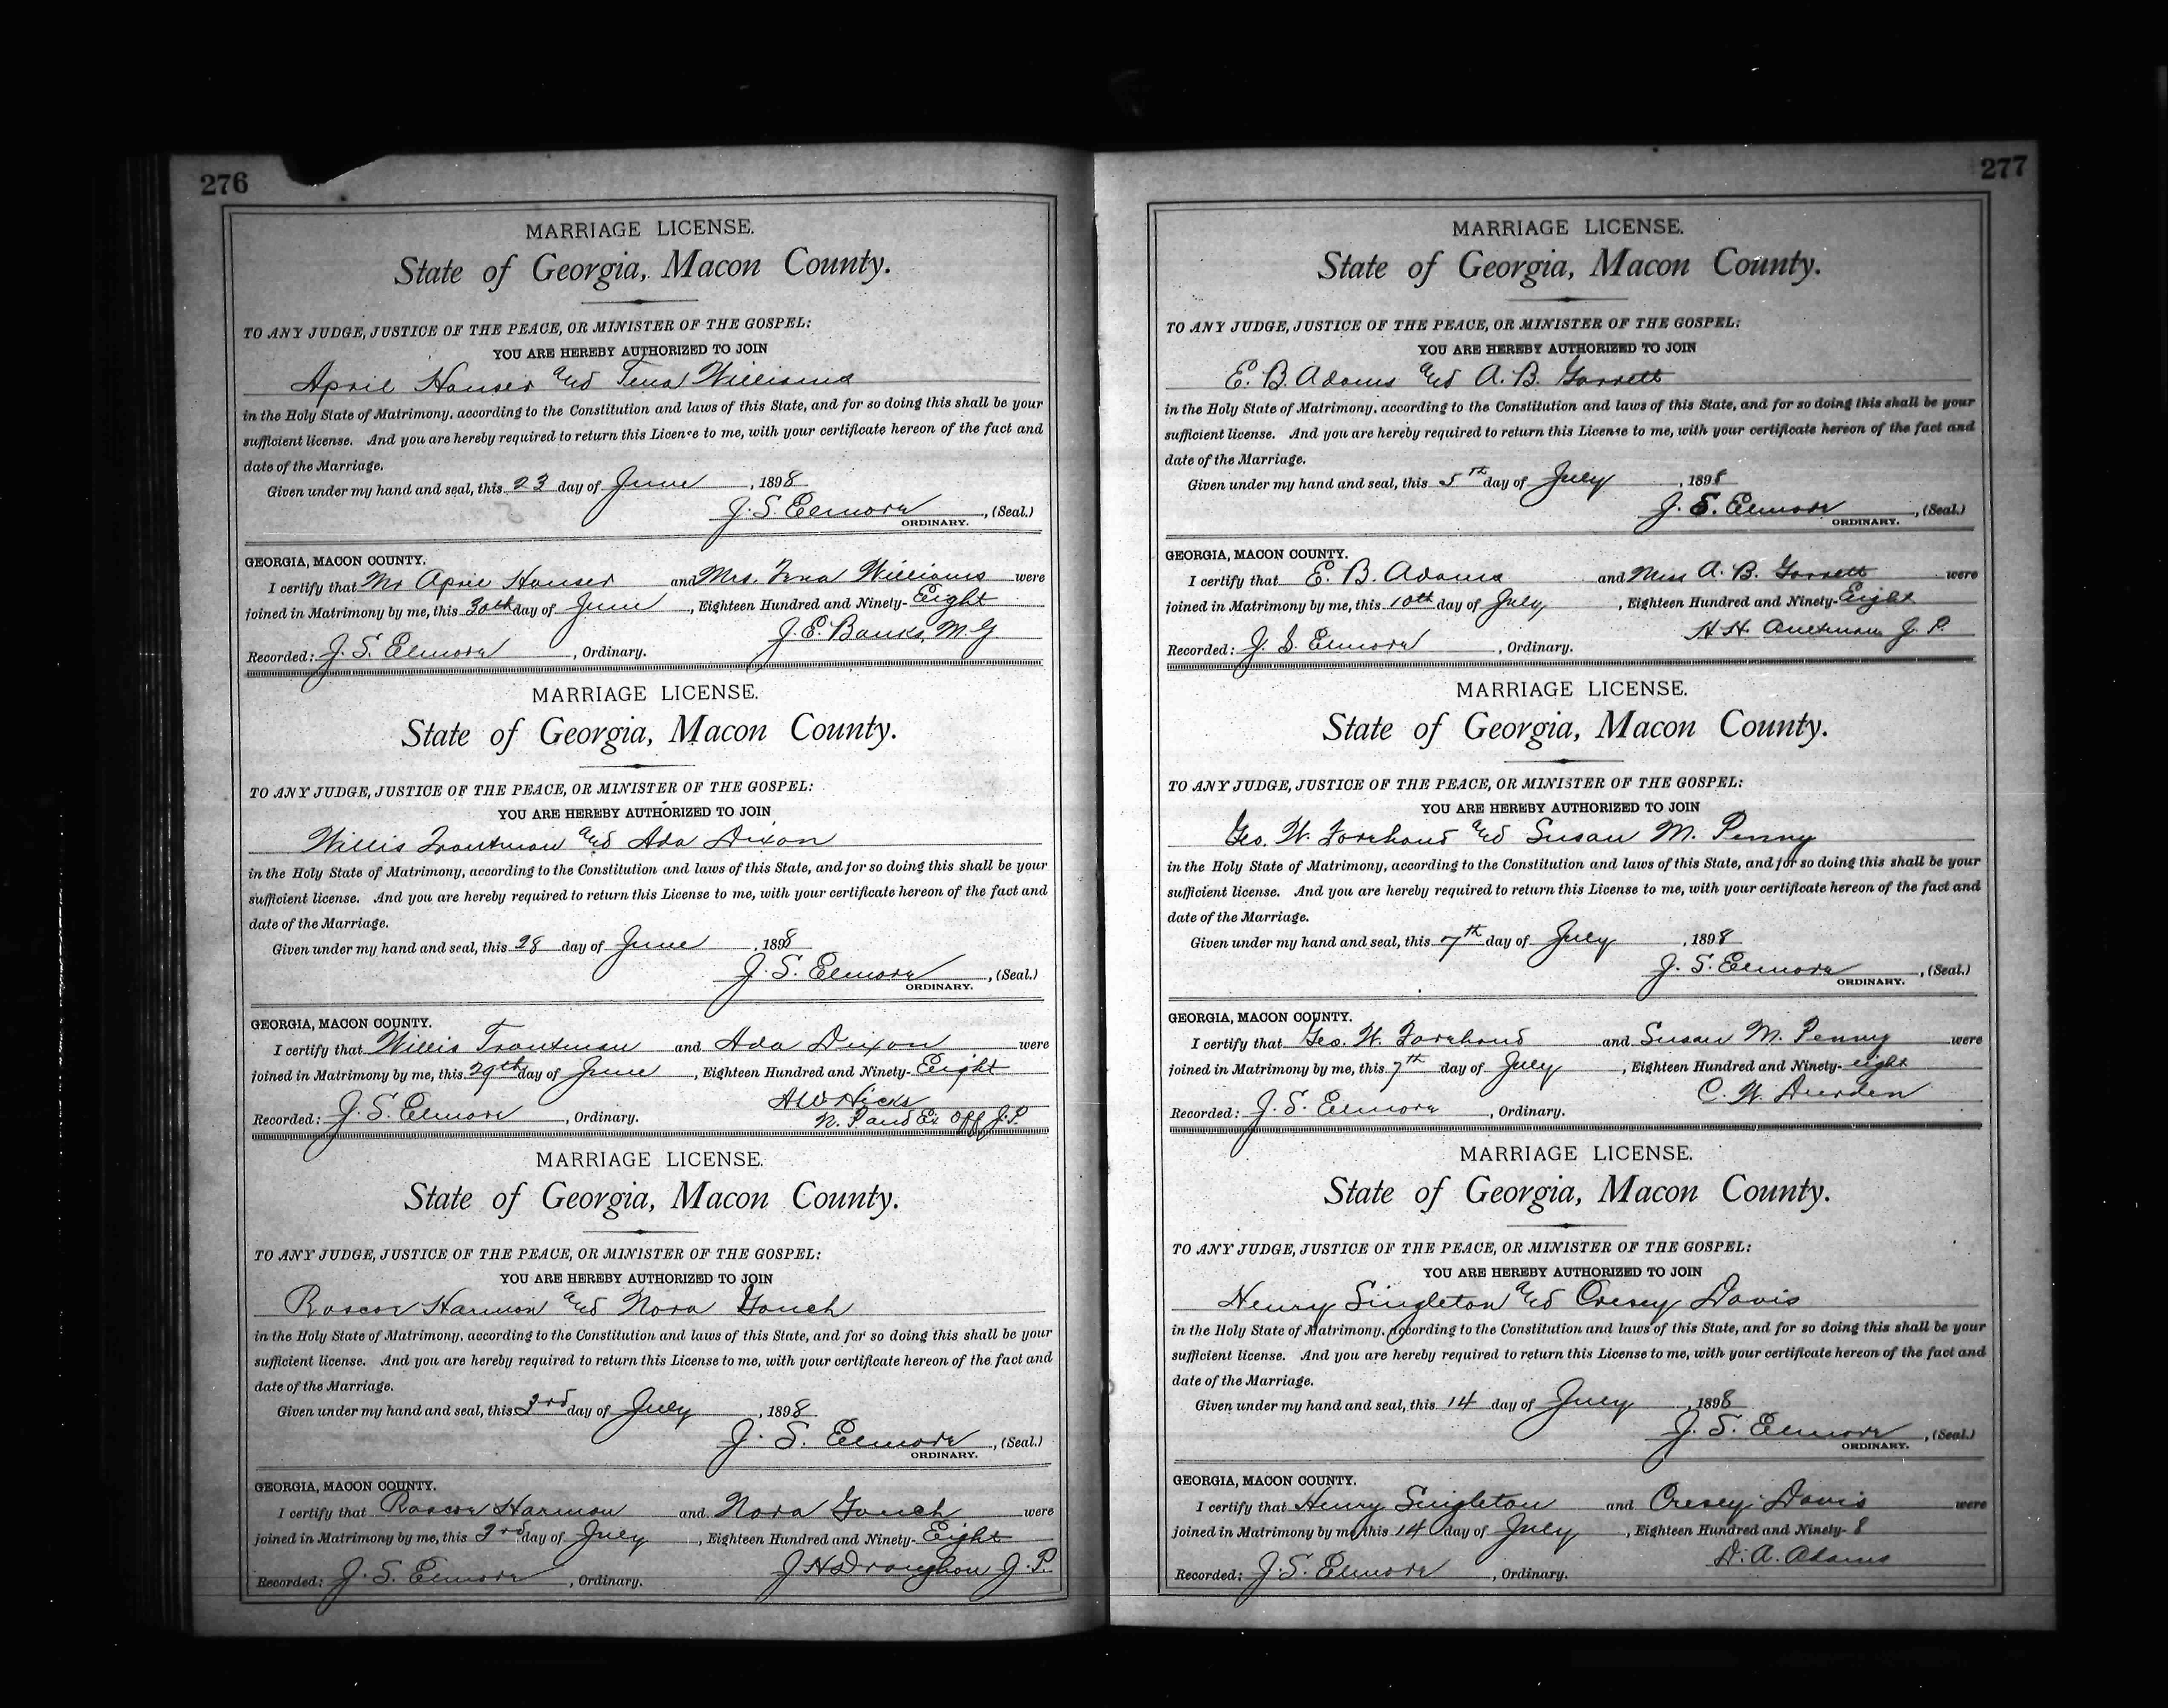 276
MARRIAGE LICENSE.
State of Georgia, Macon County.
TO ANY JUDGE, JUSTICE OF THE PEACE, OR MINISTER OF THE GOSPEL:
YOU ARE HEREBY AUTHORIZED TO JOIN
April Houser and Tena Williams
in the Holy State of Matrimony, according to the Constitution and laws of this State, and for so doing this shall be your
sufficient license. And you are hereby required to return this License to me, with your certificate hereon of the fact and
date of the Marriage.
Given under my hand and seal, this 23 day of June, 1898
J. S. Elmore, (Seal.)
ORDINARY.
GEORGIA, MACON COUNTY.
I certify that Mr April Houser and Mrs. Tena Williams were
joined in Matrimony by me, this 30th day of June, Eighteen Hundred and Ninety-Eight
J. E. Banks, M.G
Recorded: J. S. Elmore, Ordinary.
MARRIAGE LICENSE.
State of Georgia, Macon County.
TO ANY JUDGE, JUSTICE OF THE PEACE, OR MINISTER OF THE GOSPEL:
YOU ARE HEREBY AUTHORIZED TO JOIN
Willis Troutman and Ada Dixon
in the Holy State of Matrimony, according to the Constitution and laws of this State, and for so doing this shall be your
sufficient license. And you are hereby required to return this License to me, with your certificate hereon of the fact and
date of the Marriage.
Given under my hand and seal, this 28 day of June, 1898
J. S. Elmore, (Seal.)
ORDINARY.
GEORGIA, MACON COUNTY.
I certify that Willis Troutman and Ada Dixon were
joined in Matrimony by me, this 29th day of June, Eighteen Hundred and Ninety-Eight
A W Hicks
Recorded: J. S. Elmore, Ordinary. N. P and Ex Off J.P.
MARRIAGE LICENSE.
State of Georgia, Macon County.
TO ANY JUDGE, JUSTICE OF THE PEACE, OR MINISTER OF THE GOSPEL:
YOU ARE HEREBY AUTHORIZED TO JOIN
Roscoe Harmon and Nora Gouch
in the Holy State of Matrimony, according to the Constitution and laws of this State, and for so doing this shall be your
sufficient license. And you are hereby required to return this License to me, with your certificate hereon of the fact and
date of the Marriage.
Given under my hand and seal, this 3rd day of July, 1898
J. S. Elmore, (Seal.)
ORDINARY.
GEORGIA, MACON COUNTY.
I certify that Roscoe Harmon and Nora Gouch were
joined in Matrimony by me, this 3rd day of July, Eighteen Hundred and Ninety-Eight
J H Draughon J. P.
Recorded: J. S. Elmore, Ordinary.
277
MARRIAGE LICENSE.
State of Georgia, Macon County.
TO ANY JUDGE, JUSTICE OF THE PEACE, OR MINISTER OF THE GOSPEL:
YOU ARE HEREBY AUTHORIZED TO JOIN
E. B. Adams and A. B. Garrett
in the Holy State of Matrimony, according to the Constitution and laws of this State, and for so doing this shall be your
sufficient license. And you are hereby required to return this License to me, with your certificate hereon of the fact and
date of the Marriage.
Given under my hand and seal, this 5th day of July, 1898
J. S. Elmore, (Seal.)
ORDINARY.
GEORGIA, MACON COUNTY.
I certify that E. B. Adams and Miss A. B. Garrett were
joined in Matrimony by me, this 10th day of July, Eighteen Hundred and Ninety-Eight
H. H. Aultman J. P.
Recorded: J. S. Elmore, Ordinary.
MARRIAGE LICENSE.
State of Georgia, Macon County.
TO ANY JUDGE, JUSTICE OF THE PEACE, OR MINISTER OF THE GOSPEL:
YOU ARE HEREBY AUTHORIZED TO JOIN
Geo. W. Forehand and Susan M. Penny
in the Holy State of Matrimony, according to the Constitution and laws of this State, and for so doing this shall be your
sufficient license. And you are hereby required to return this License to me, with your certificate hereon of the fact and
date of the Marriage.
Given under my hand and seal, this 7th day of July, 1898
J. S. Elmore, (Seal.)
ORDINARY.
GEORGIA, MACON COUNTY.
I certify that Geo. W. Forehand and Susan M. Penny were
joined in Matrimony by me, this 7th day of July, Eighteen Hundred and Ninety-eight
C. W. Durden
Recorded: J. S. Elmore, Ordinary.
MARRIAGE LICENSE.
State of Georgia, Macon County.
TO ANY JUDGE, JUSTICE OF THE PEACE, OR MINISTER OF THE GOSPEL:
YOU ARE HEREBY AUTHORIZED TO JOIN
Henry Singleton and Cresey Davis
in the Holy State of Matrimony, according to the Constitution and laws of this State, and for so doing this shall be your
sufficient license. And you are hereby required to return this License to me, with your certificate hereon of the fact and
date of the Marriage.
Given under my hand and seal, this 14 day of July, 1898
J. S. Elmore, (Seal.)
ORDINARY.
GEORGIA, MACON COUNTY.
I certify that Henry Singleton and Cresey Davis were
joined in Matrimony by me, this 14 day of July, Eighteen Hundred and Ninety-8
D. A. Adams
Recorded: J. S. Elmore, Ordinary.